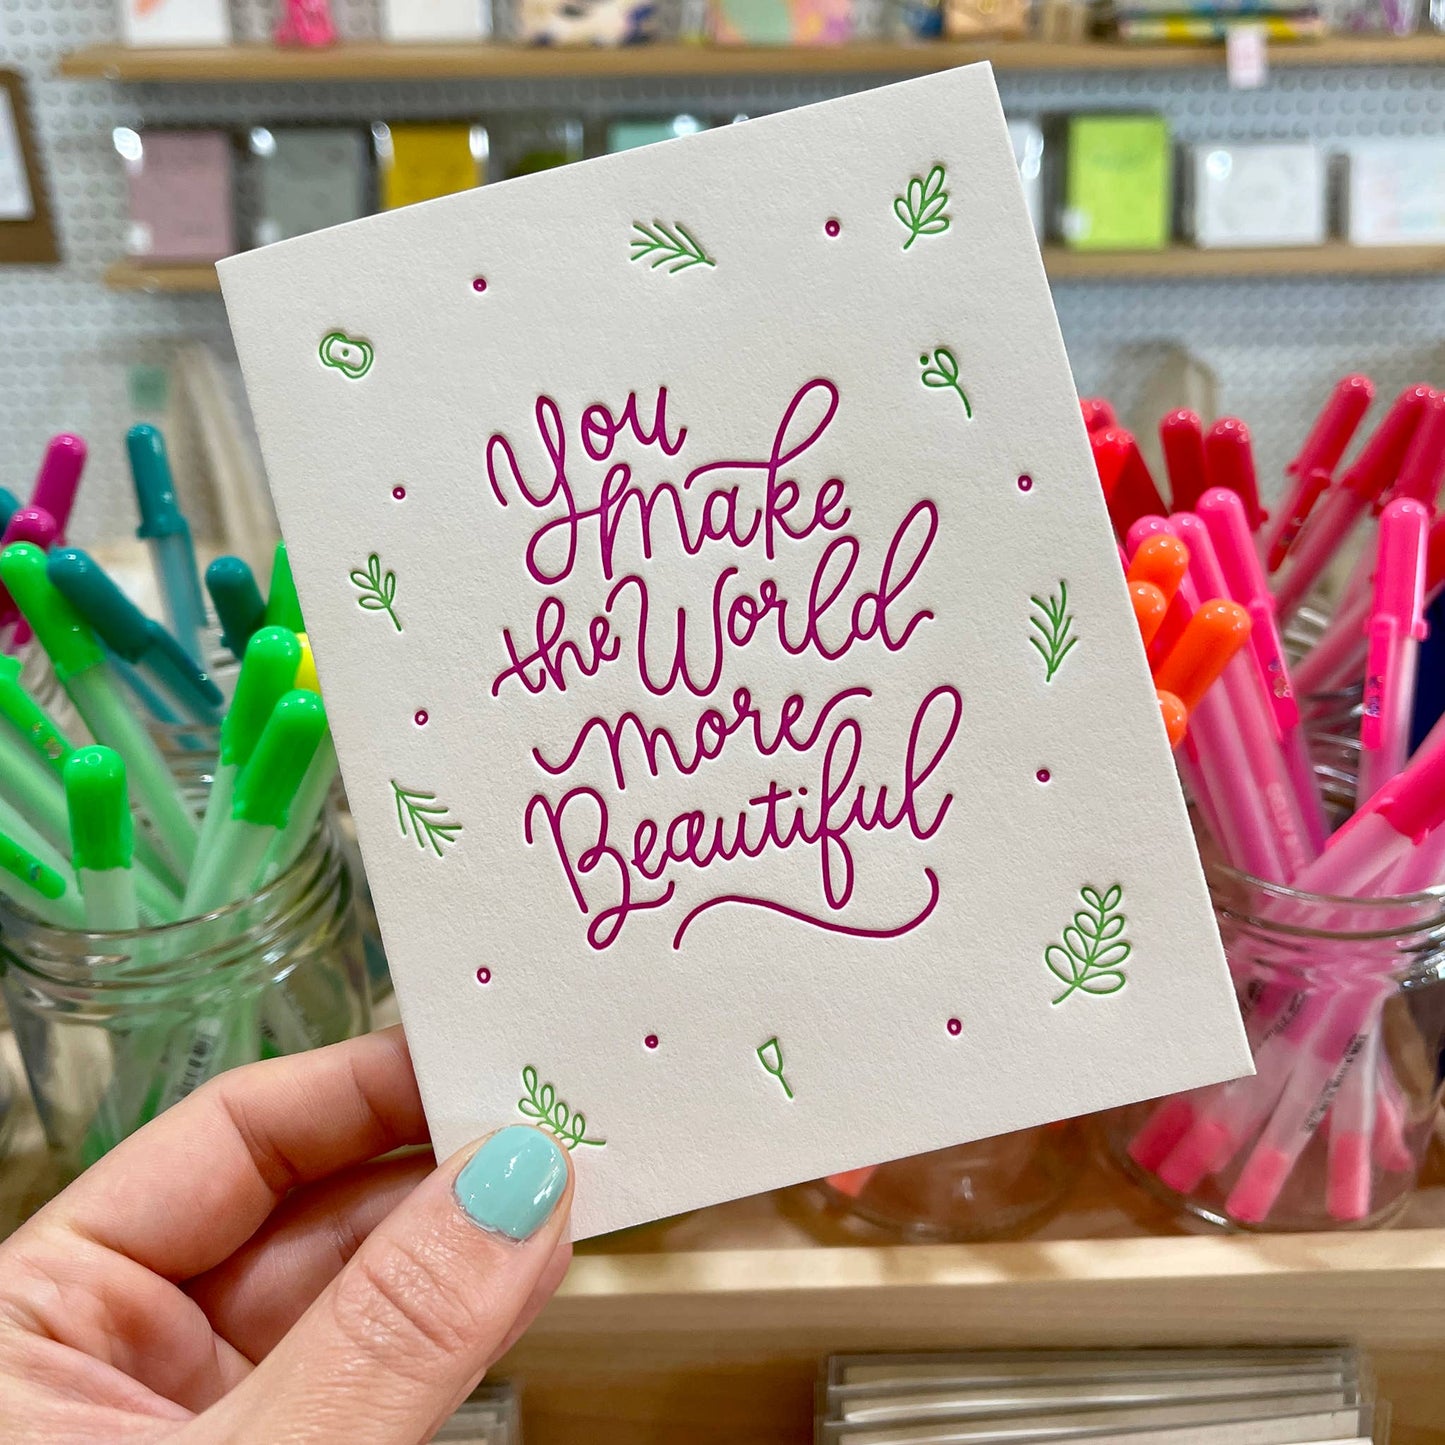 You
make
the World
more
Beautiful